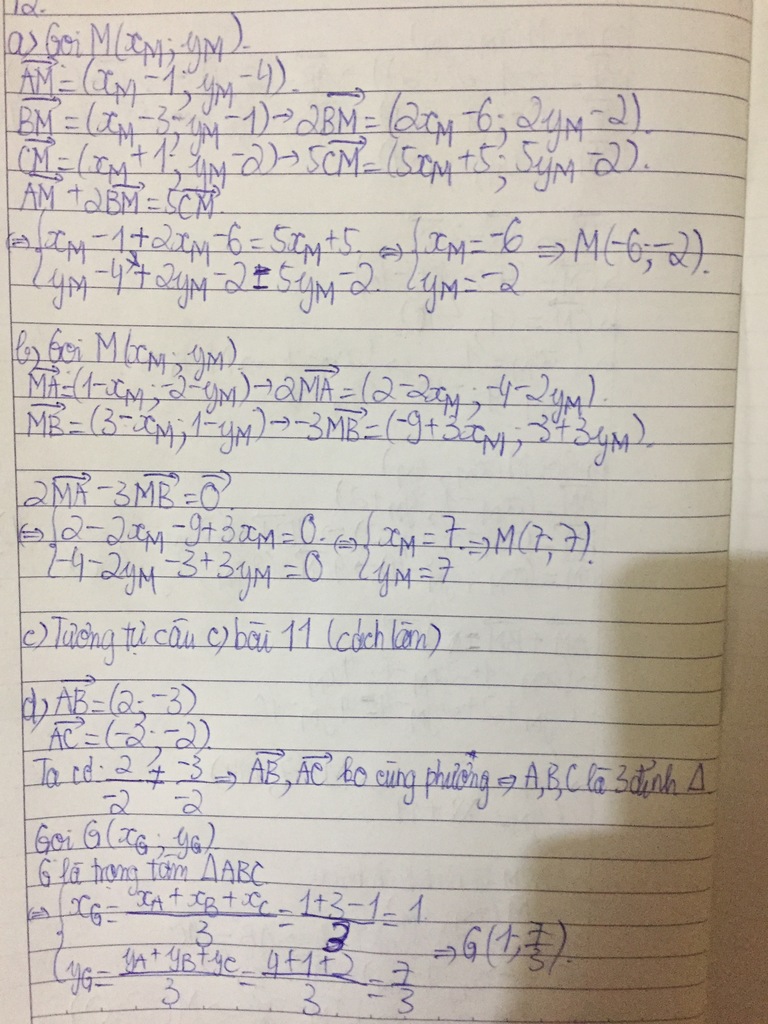 12.
a) Gọi M(x_M; y_M).
AM→ = (x_M − 1; y_M − 4).
BM→ = (x_M − 3; y_M − 1) → 2BM→ = (2x_M − 6; 2y_M − 2).
CM→ = (x_M + 1; y_M − 2) → 5CM→ = (5x_M + 5; 5y_M − 2).
AM→ + 2BM→ = 5CM→
⇔ { x_M − 1 + 2x_M − 6 = 5x_M + 5. ⇔ { x_M = −6 ⇒ M(−6; −2).
{ y_M − 4 + 2y_M − 2 = 5y_M − 2. { y_M = −2
b) Gọi M(x_M; y_M)
MA→ = (1 − x_M; −2 − y_M) → 2MA→ = (2 − 2x_M; −4 − 2y_M).
MB→ = (3 − x_M; 1 − y_M) → −3MB→ = (−9 + 3x_M; −3 + 3y_M).
2MA→ − 3MB→ = 0→
⇔ { 2 − 2x_M − 9 + 3x_M = 0. ⇔ { x_M = 7. ⇒ M(7; 7).
{ −4 − 2y_M − 3 + 3y_M = 0 { y_M = 7
c) Tương tự câu c) bài 11 (cách làm)
d) AB→ = (2; −3)
AC→ = (−2; −2).
Ta có: 2/−2 ≠ −3/−2 ⇒ AB→, AC→ ko cùng phương ⇒ A, B, C là 3 đỉnh Δ
Gọi G(x_G; y_G)
G là trọng tâm ΔABC
⇔ { x_G = (x_A + x_B + x_C)/3 = (1 + 3 − 1)/3 = 1
{ y_G = (y_A + y_B + y_C)/3 = (4 + 1 + 2)/3 = 7/3 ⇒ G(1; 7/3).